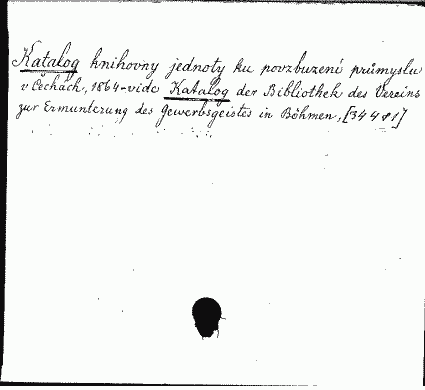 Katalog knihovny jednoty ku povzbuzení průmyslu
v Čechách, 1864-vide Katalog der Bibliothek des Vereins
zur Ermunterung des Gewerbsgeistes in Böhmen, [34481]